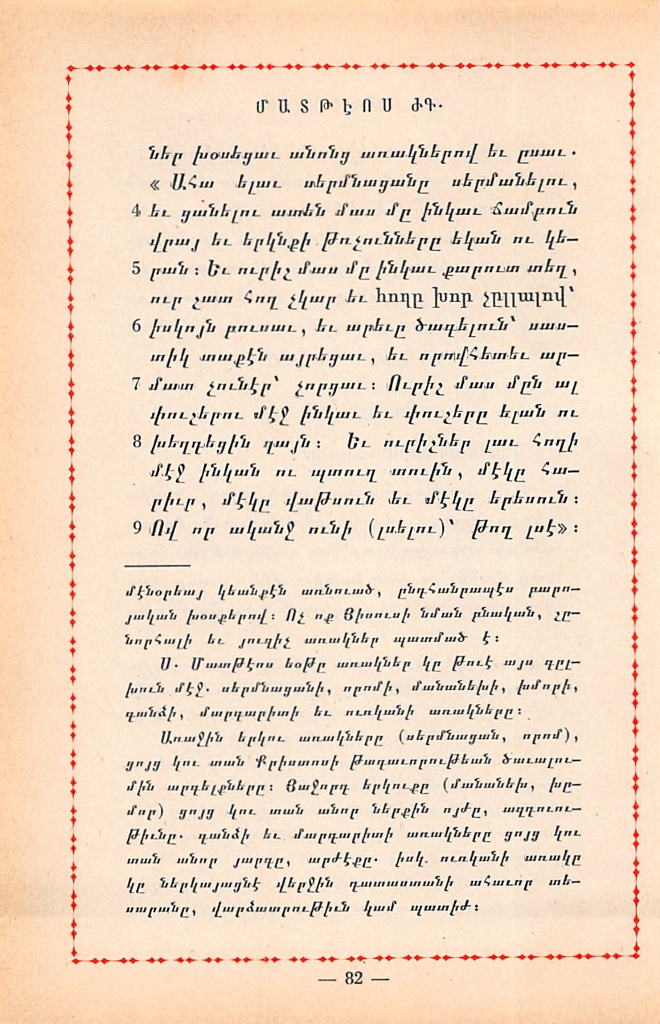 ՄԱՏԹԷՈՍ ԺԳ.
ներ խօսեցաւ անոնց առակներով եւ ըսաւ.
« Ահա ելաւ սերմնացանը սերմանելու,
4 եւ ցանելու ատեն մաս մը ինկաւ ճամբուն
վրայ եւ երկնքի թռչունները եկան ու կե–
5 րան: Եւ ուրիշ մաս մը ինկաւ քարուտ տեղ,
ուր շատ հող չկար եւ հողը խոր չըլլալով՝
6 իսկոյն բուսաւ, եւ արեւը ծագելուն՝ սաս–
տիկ տաքէն այրեցաւ, եւ որովհետեւ ար–
7 մատ չունէր՝ չորցաւ: Ուրիշ մաս մըն ալ
փուշերու մէջ ինկաւ եւ փուշերը ելան ու
8 խեղդեցին զայն: Եւ ուրիշներ լաւ հողի
մէջ ինկան ու պտուղ տուին, մէկը հա–
րիւր, մէկը վաթսուն եւ մէկը երեսուն:
9 Ով որ ականջ ունի (լսելու)՝ թող լսէ»:
մէնօրեայ կեանքէն առնուած, ընդհանրապէս բարո–
յական խօսքերով: Ոչ ոք Յիսուսի նման բնական, շը–
նորհալի եւ յուզիչ առակներ պատմած է:
Ս. Մատթէոս եօթը առակներ կը թուէ այս գըլ–
խուն մէջ. սերմնացանի, որոմի, մանանեխի, խմորի,
գանձի, մարգարիտի եւ ուռկանի առակները:
Առաջին երկու առակները (սերմնացան, որոմ),
ցոյց կու տան Քրիստոսի Թագաւորութեան ծաւալու–
մին արգելքները: Յաջորդ երկուքը (մանանեխ, խը–
մոր) ցոյց կու տան անոր ներքին ոյժը, ազդուու–
թիւնը. գանձի եւ մարգարիտի առակները ցոյց կու
տան անոր յարգը, արժէքը. իսկ ուռկանի առակը
կը ներկայացնէ վերջին դատաստանի ահաւոր տե–
սարանը, վարձատրութիւն կամ պատիժ:
— 82 —